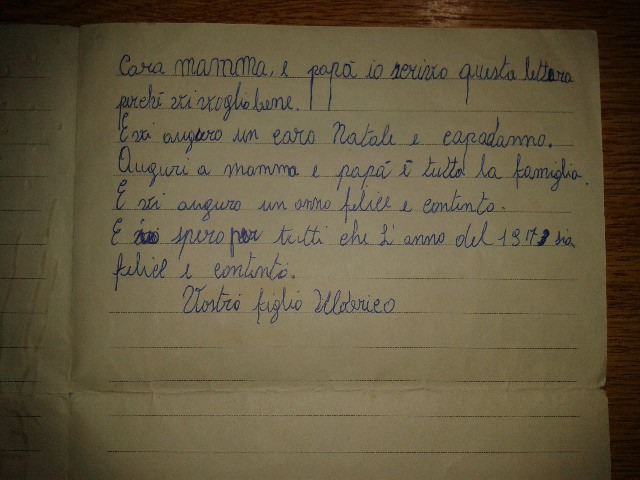 Cara mamma, e papà io scrivo questa lettera
perché vi voglio bene.
E vi auguro un caro Natale e capodanno.
Auguri a mamma e papà è tutta la famiglia.
E vi auguro un anno felice e contento.
E spero per tutti che l'anno del 1973 sia
felice e contento.
Vostro figlio Ulderico